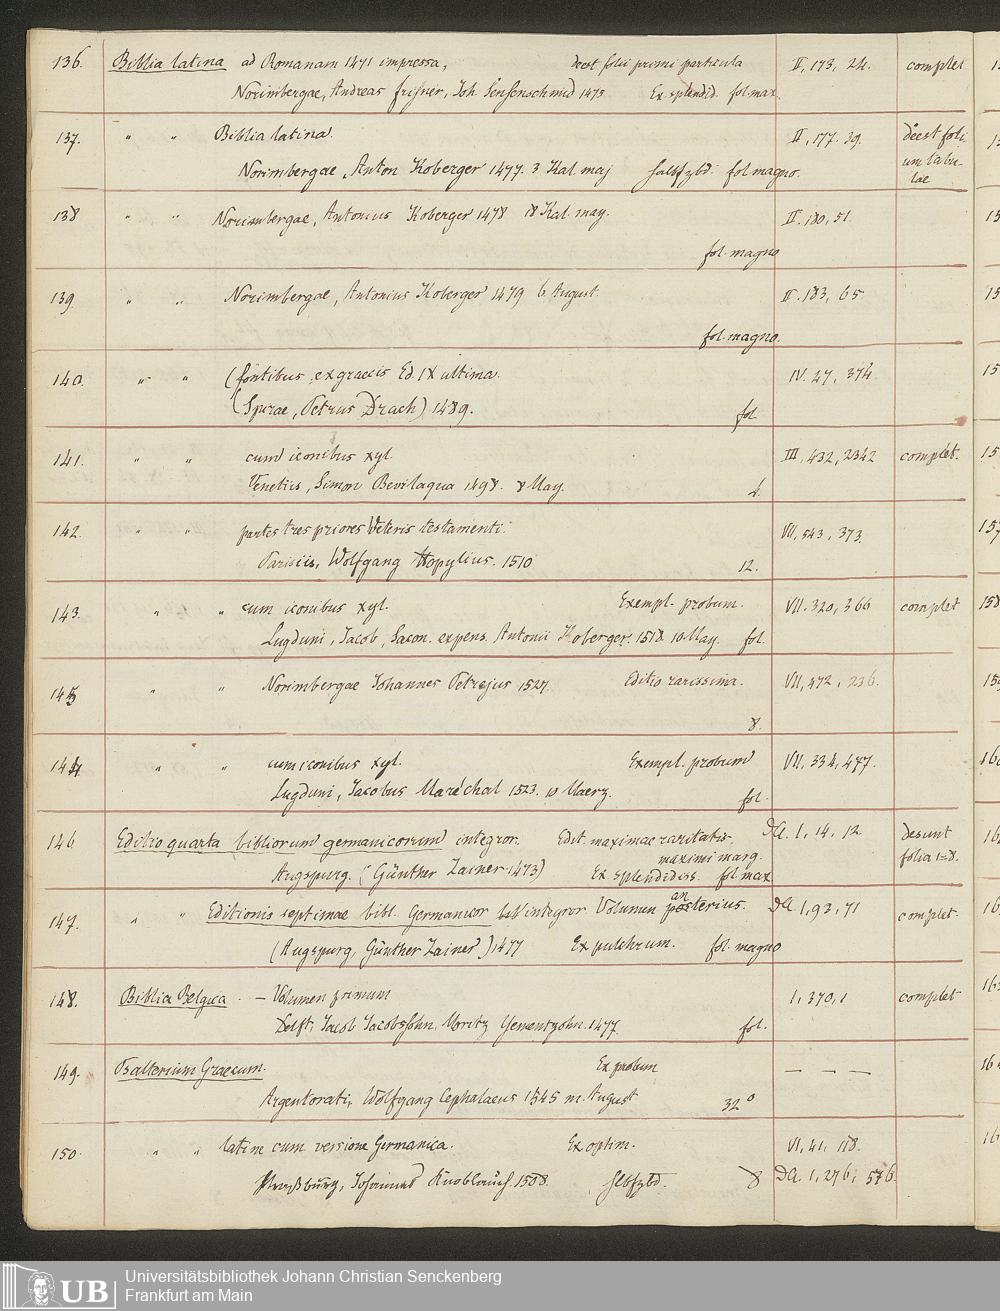 136. Biblia latina ad Romanam 1471 impressa, deest folii primi particula II, 173, 24. complet
Norimbergae, Andreas Frisner, Joh. Sensenschmid 1475 Ex. splendid. fol. max.
137. " " Biblia latina. II, 177. 39. deest foli-
um tabu-
lae
Norimbergae, Anton Koberger 1477. 3 Kal. maj Halbfzbd. fol magno.
138 " " Norimbergae, Antonius Koberger 1478 18 Kal. may. II. 180, 51.
fol. magno
139. " " Norimbergae, Antonius Koberger 1479 6 August. II. 183, 65
fol. magno.
140. " " (fontibus ex graecis Ed. IX ultima. IV. 27, 374.
(Spirae, Petrus Drach) 1489. fol
141. " " cum iconibus xyl III, 432, 2342 complet.
Venetiis, Simon Bevilaqua 1498. 8 May. 4.
142. " " partes tres priores Veteris testamenti. VII, 543, 373.
Parisiis, Wolfgang Hopylius. 1510 12.
143. " " cum iconibus xyl. Exempl. probum. VII. 320, 366 complet
Lugduni, Jacob, Sacon. expens. Antonii Koberger. 1518. 10 May. fol.
145 " " Norimbergae Johannes Petrejus 1527. Editio rarissima. VII, 472, 236.
8.
144. " " cum iconibus xyl. Exempl. probum VII. 334, 477.
Lugduni, Jacobus Maréchal 1523. 10 Maerz. fol.
146 Editio quarta bibliorum germanicorum integror. Edit. maximae raritatis. DA. 1, 14, 12. desunt
folia 1=8.
maximi marg.
Augspurg. (Günther Zainer 1473) Ex splendidiss. fol max
147. " " Editionis septimae bibl. Germanicor integror Volumen posterius. DA. 1, 93, 71 complet.
(Augspurg, Günther Zainer) 1477 Ex pulchrum. fol. magno
148. Biblia Belgica. — Volumen primum 1, 370, 1 complet
Delft, Jacob Jacobssohn, Moritz Yementzohn. 1477 fol.
149. Psalterium Graecum. Ex probum — — —
Argentorati, Wolfgang Cephalaeus 1545 m. August 32°
150. " " latine cum versione Germanica. Ex optim. VI, 41, 118.
Straßburg, Johannes Knoblauch. 1508. Hlbfzbd. 8 DA. 1, 276, 576.
UB Universitätsbibliothek Johann Christian Senckenberg
Frankfurt am Main